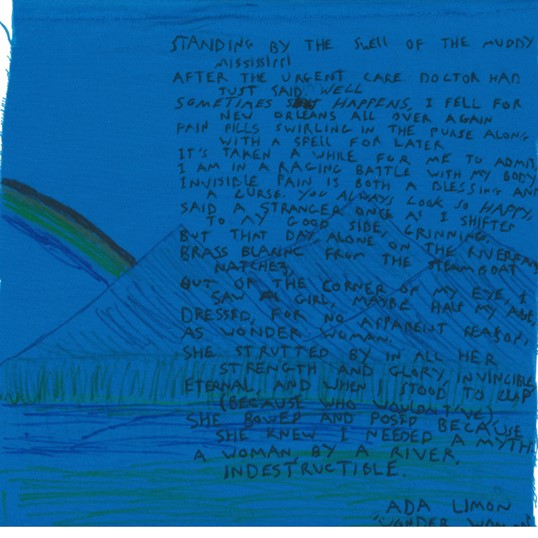 STANDING BY THE SWELL OF THE MUDDY
MISSISSIPPI
AFTER THE URGENT CARE DOCTOR HAD
JUST SAID, WELL
SOMETIMES HAPPENS, I FELL FOR
NEW ORLEANS ALL OVER AGAIN
PAIN PILLS SWIRLING IN THE PURSE ALONG
WITH A SPELL FOR LATER
IT'S TAKEN A WHILE FOR ME TO ADMIT,
I AM IN A RAGING BATTLE WITH MY BODY
INVISIBLE PAIN IS BOTH A BLESSING AND
A CURSE. YOU ALWAYS LOOK SO HAPPY,
SAID A STRANGER ONCE AS I SHIFTED
TO MY GOOD SIDE, GRINNING.
BUT THAT DAY, ALONE ON THE RIVERFRONT
BRASS BLARING FROM THE STEAMBOAT
NATCHEZ,
OUT OF THE CORNER OF MY EYE, I
SAW A GIRL, MAYBE HALF MY AGE,
DRESSED, FOR NO APPARENT REASON,
AS WONDER WOMAN.
SHE STRUTTED BY IN ALL HER
STRENGTH AND GLORY, INVINCIBLE
ETERNAL, AND WHEN I STOOD TO CLAP
(BECAUSE WHO WOULDN'T'VE),
SHE BOWED AND POSED BECAUSE
SHE KNEW I NEEDED A MYTH
A WOMAN, BY A RIVER,
INDESTRUCTIBLE.
ADA LIMON
"WONDER WOMAN"